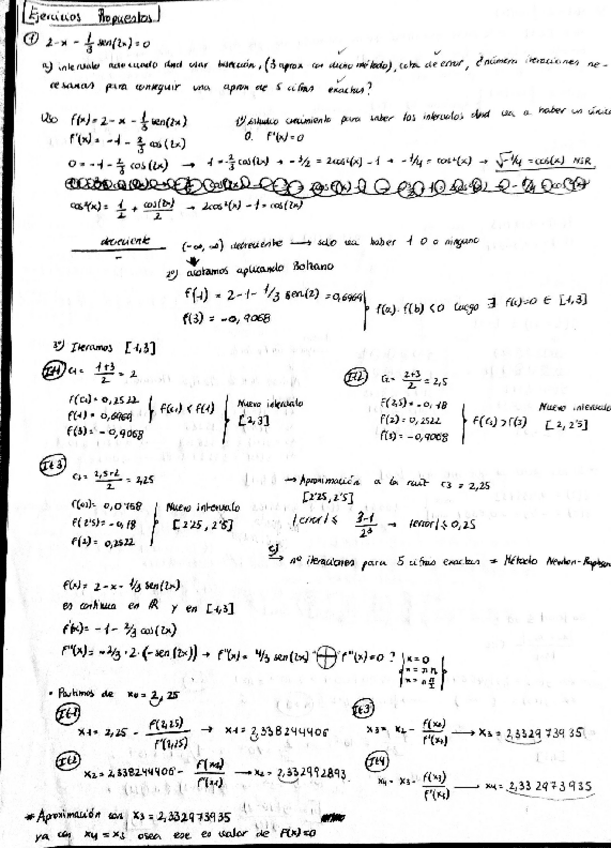 Ejercicios Propuestos
① 2 - x - 1/3 sen(2x) = 0
a) intervalo adecuado dnd usar bisección, (3 aprox con dicho método), cota de error, ¿número iteraciones ne-
cesarias para conseguir una aprox de 5 cifras exactas?
f(x) = 2 - x - 1/3 sen(2x) 1º) estudio crecimiento para saber los intervalos dnd va a haber un único
f'(x) = -1 - 2/3 cos(2x) 0. f'(x) = 0
0 = -1 - 2/3 cos(2x) → 1 = -2/3 cos(2x) → -3/2 = 2cos²(x) - 1 → -1/4 = cos²(x) → √-1/4 = cos(x) NSR
cos²(x) = 1/2 + cos(2x)/2 → 2cos²(x) - 1 = cos(2x)
decreciente (-∞, ∞) decreciente → solo va haber 1 0 o ninguno
-
2º) acotamos aplicando Bolzano
f(1) = 2 - 1 - 1/3 sen(2) = 0,6969
f(3) = -0,9068
f(a) · f(b) < 0 luego ∃ f(c) = 0 ∈ [1,3]
3º) Iteramos [1,3]
It1 c1 = 1+3/2 = 2
f(c1) = 0,2522
f(1) = 0,6969
f(3) = -0,9068
f(c1) < f(1)
Nuevo intervalo
[2,3]
It2 c2 = 2+3/2 = 2,5
f(2,5) = -0,18
f(2) = 0,2522
f(3) = -0,9068
f(c2) > f(3)
Nuevo intervalo
[2, 2'5]
It3 c3 = 2,5+2/2 = 2,25
f(c3) = 0,0758
f(2'5) = -0,18
f(2) = 0,2522
Nuevo intervalo
[2'25, 2'5]
→ Aproximación a la raíz c3 = 2,25
[2'25, 2'5]
|error| ≤ 3-1/2³ → |error| ≤ 0,25
→ nº iteraciones para 5 cifras exactas = Método Newton-Raphson
f(x) = 2 - x - 1/3 sen(2x)
es continua en ℝ y en [1,3]
f'(x) = -1 - 2/3 cos(2x)
f''(x) = -2/3 · 2 · (-sen(2x)) → f''(x) = 4/3 sen(2x) ⊕ f''(x) = 0 ?
x = 0
x = π n
x = n π/2
• Partimos de x0 = 2,25
It1
x1 = 2,25 - f(2,25)/f'(2,25) → x1 = 2,338244406
It2
x2 = 2,338244406 - f(x1)/f'(x1) → x2 = 2,332992893
It3
x3 = x2 - f(x2)/f'(x2) → x3 = 2,332973935
It4
x4 = x3 - f(x3)/f'(x3) → x4 = 2,332973935
* Aproximación con x3 = 2,332973935
ya con x4 = x3 osea ese es valor de f(x) = 0